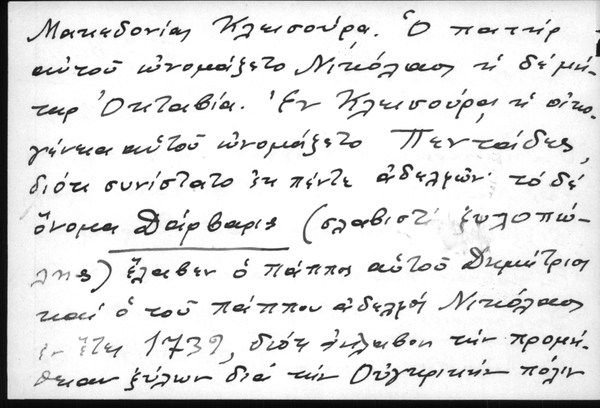 Μακεδονίας Κλεισούρα. Ὁ πατὴρ
αὐτοῦ ὠνομάζετο Νικόλαος ἡ δὲ μή-
τηρ Ὀκταβία. Ἐν Κλεισούρᾳ ἡ οἰκο-
γένεια αὐτοῦ ὠνομάζετο Πενταίδες,
διότι συνίστατο ἐκ πέντε ἀδελφῶν· τὸ δὲ
ὄνομα Δάρβαρις (σλαβιστὶ ξυλοπώ-
λης) ἔλαβεν ὁ πάππος αὐτοῦ Δημήτριος
καὶ ὁ τοῦ πάππου ἀδελφὸς Νικόλαος
ἐν ἔτει 1739, διότι ἀνέλαβον τὴν προμή-
θειαν ξύλων διὰ τὴν Οὑγγρικὴν πόλιν